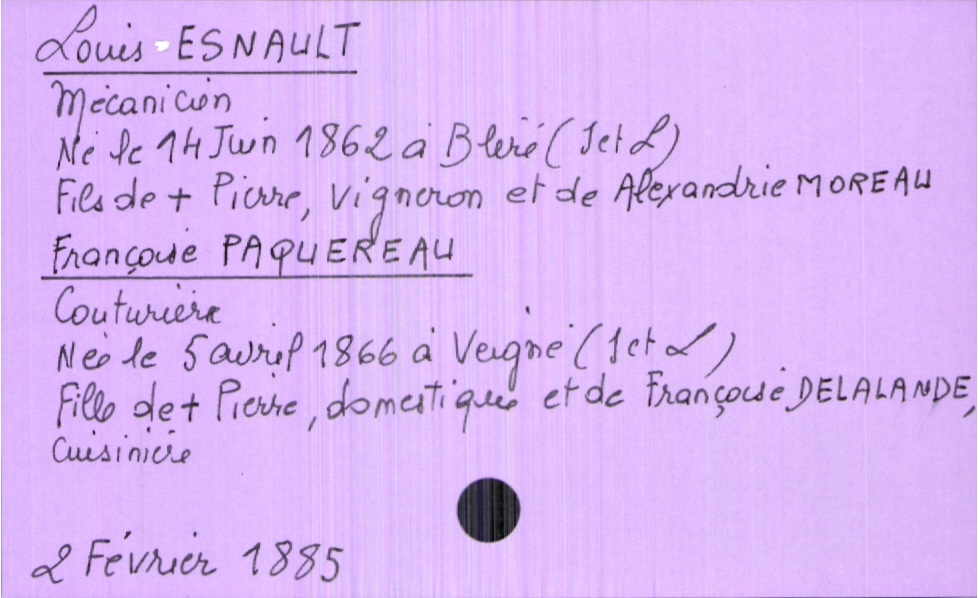 Louis ESNAULT
Mécanicien
Né le 14 Juin 1862 à Bléré (I et L)
Fils de + Pierre, Vigneron et de Alexandrie MOREAU
Françoise PAQUEREAU
Couturière
Née le 5 avril 1866 à Veigné (I et L)
Fille de + Pierre, domestique et de Françoise DELALANDE,
Cuisinière
2 Février 1885